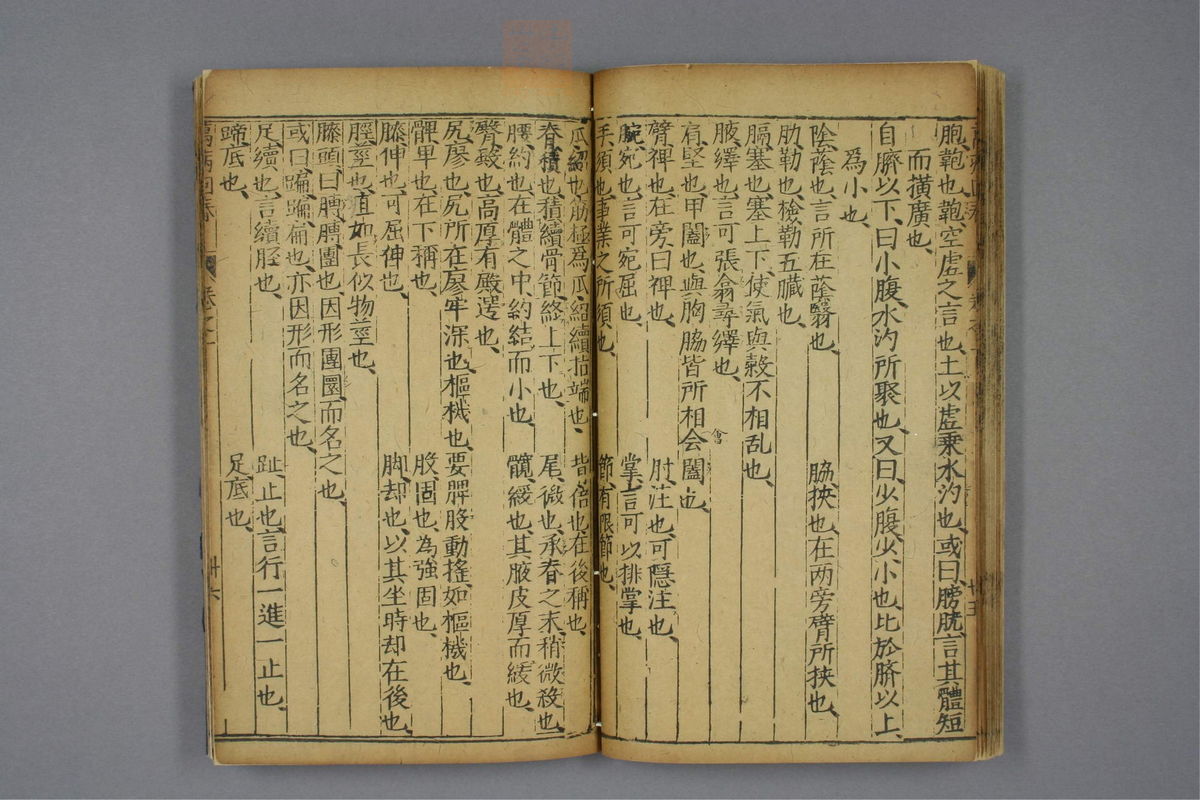 胞、鞄也、鞄空虛之言也、土以虛乘水汋也、或曰膀胱、言其體短
而横廣也、
自臍以下、曰小腹、水汋所聚也、又曰少腹、少小也、比於臍以上
為小也、
陰、蔭也、言所在蔭翳也、 脇、挾也、在两旁臂所挾也、
肋、勒也、檢勒五臟也、
膈、塞也、塞上下、使氣與穀不相乱也、
腋、繹也、言可張翕尋繹也、
肩、堅也、甲闔也、與胸脇皆所相会闔也、 會
臂、禆也、在旁曰禆也、 肘、注也、可隠注也、
腕、宛也、言可宛屈也、 掌、言可以排掌也、
手、須也、事業之所須也、 節、有限節也、
瓜、紹也、筋極爲瓜、紹續指端也、 背、倍也、在後稱也、
脊、積也、積續骨節、終上下也、 尾、微也、承脊之末、稍微殺也、
腰、約也、在體之中、約結而小也、 髖、緩也、其腋皮厚而緩也、
臀、殿也、高厚有殿遌也、
尻、廖也、尻所在廖牢深也、樞、機也、要髀股動搖、如樞機也、
髀、卑也、在下稱也、 股、固也、為強固也、
膝、伸也、可屈伸也、 脚、却也、以其坐時却在後也、
脛、莖也、直如長似物莖也、
膝頭曰膊、膊、團也、因形團圜而名之也、
或曰蹁、蹁、扁也、亦因形而名之也、
足、續也、言續脛也、 趾、止也、言行一進一止也、
蹄、底也、 足、底也、
萬病回春 卷之一 廿六
廿五